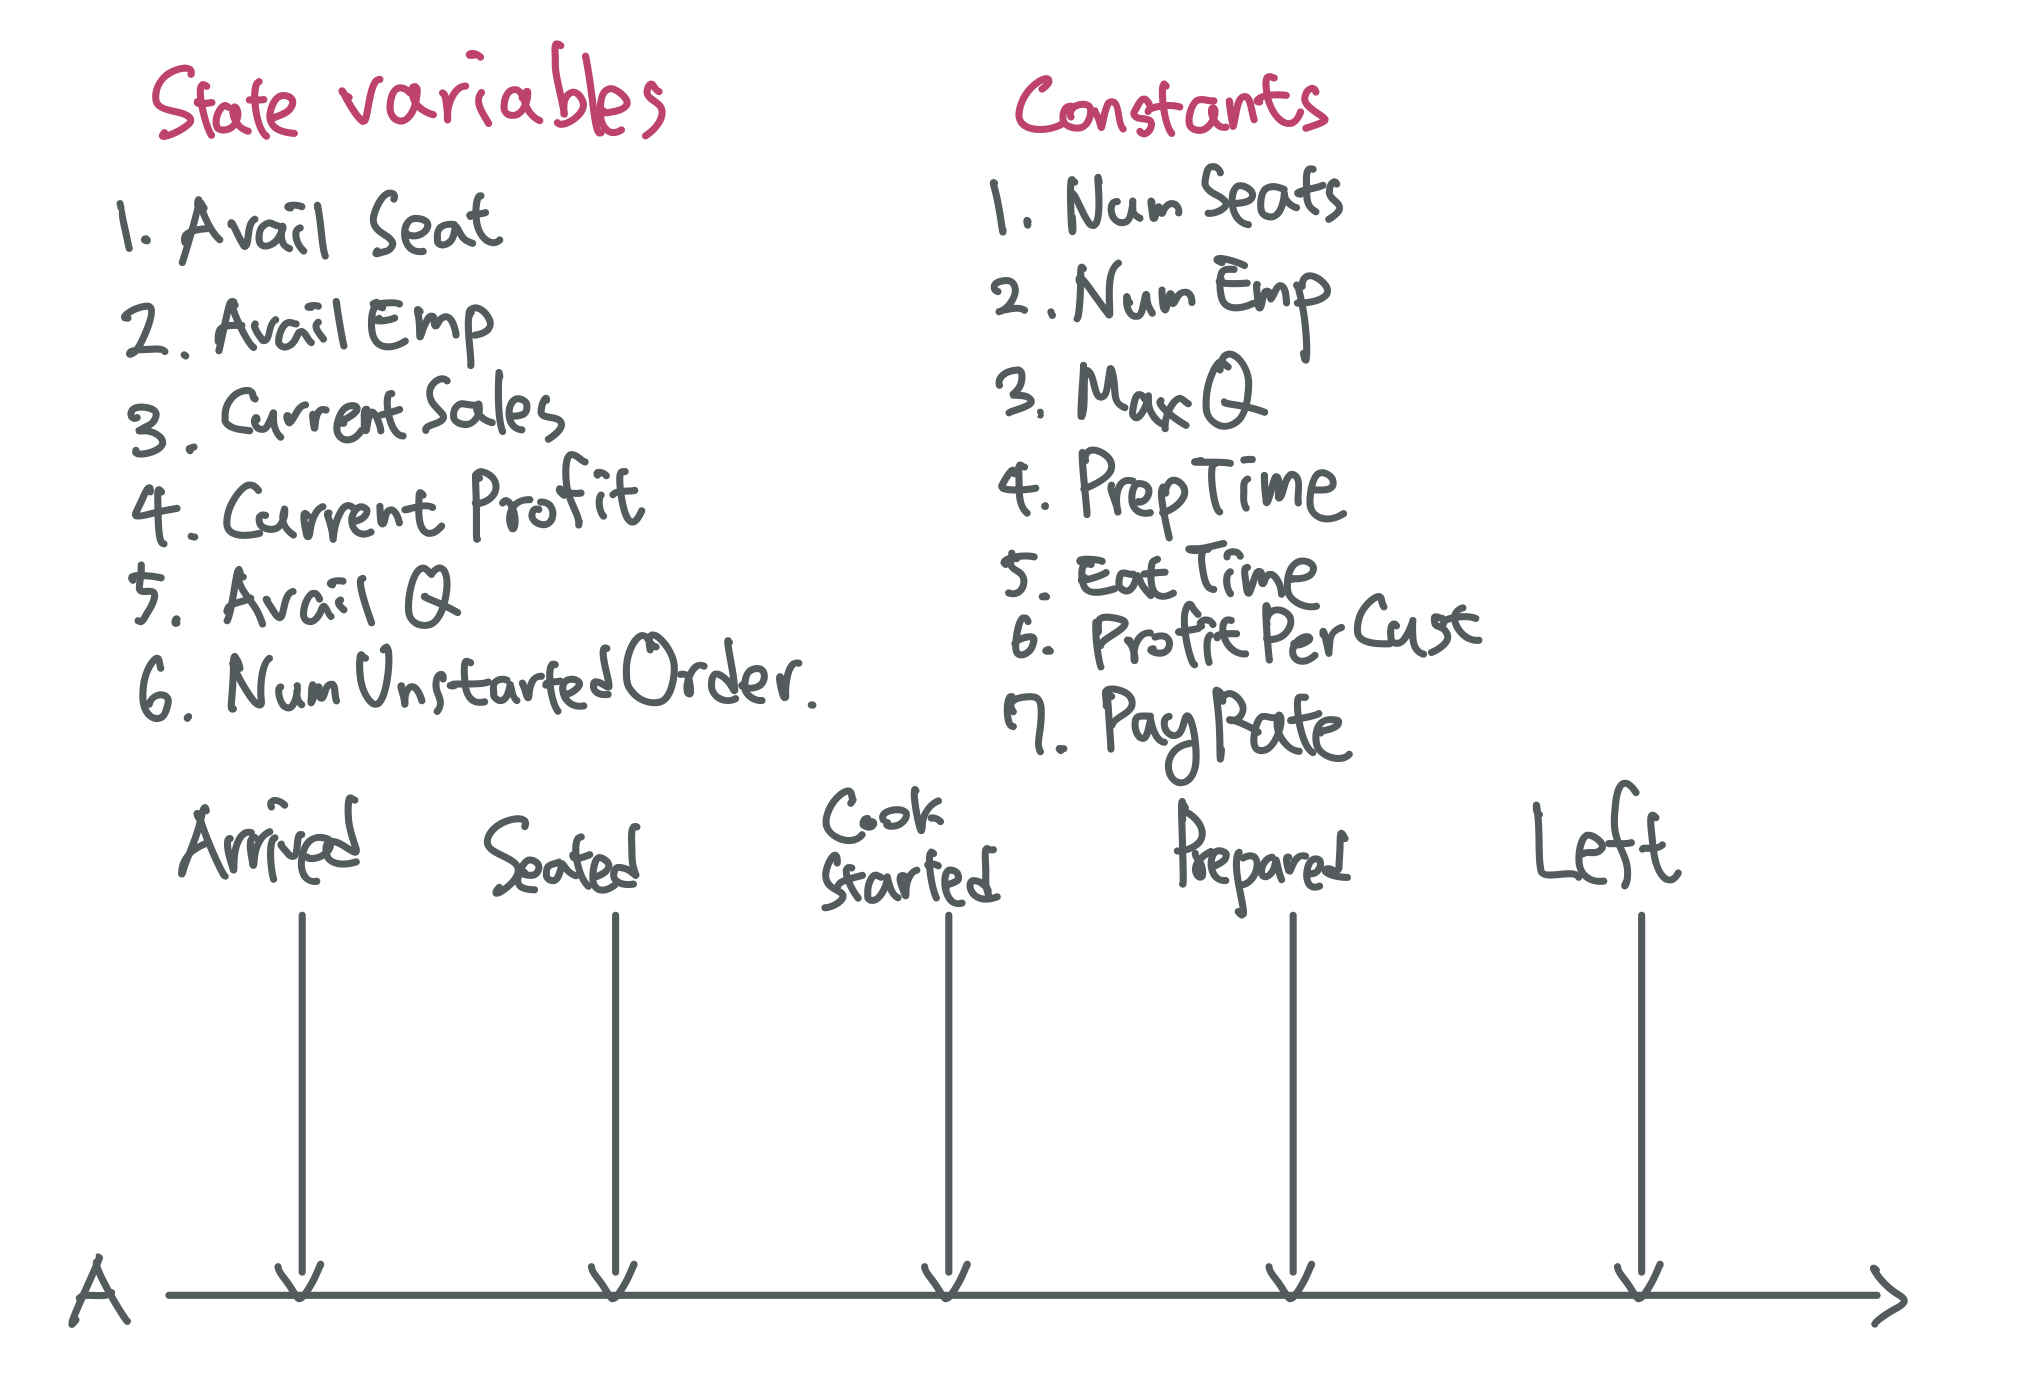 State variables
1. Avail Seat
2. Avail Emp
3. Current Sales
4. Current Profit
5. Avail Q
6. Num Unstarted Order.
Constants
1. Num Seats
2. Num Emp
3. Max Q
4. Prep Time
5. Eat Time
6. Profit Per Cust
7. Pay Rate
Arrived
Seated
Cook
started
Prepared
Left
A